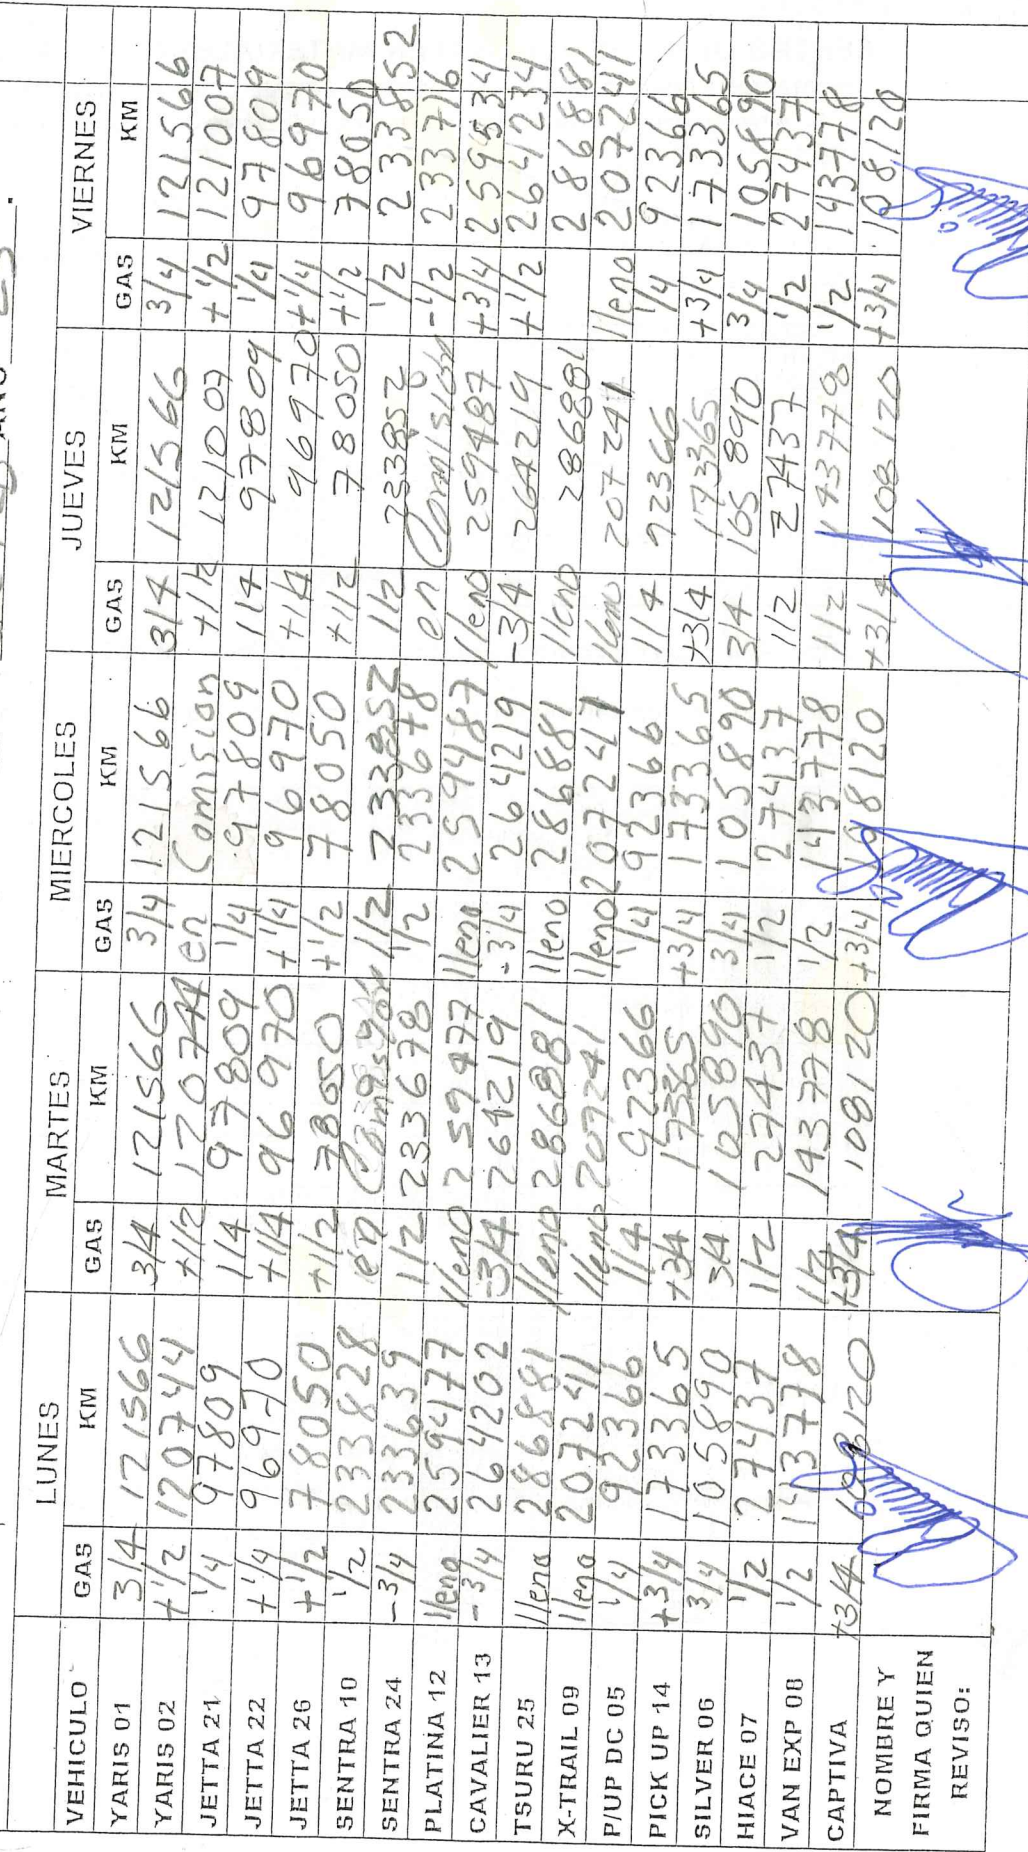 AÑO 23.
LUNES MARTES MIERCOLES JUEVES VIERNES
VEHICULO GAS KM GAS KM GAS KM GAS KM GAS KM
YARIS 01 3/4 121566 3/4 121566 3/4 121566 3/4 121566 3/4 121566
YARIS 02 +1/2 120744 +1/2 120744 en Comision +1/2 121007 +1/2 121007
JETTA 21 1/4 97809 1/4 97809 1/4 97809 1/4 97809 1/4 97809
JETTA 22 +1/4 96970 +1/4 96970 +1/4 96970 +1/4 96970 +1/4 96970
JETTA 26 +1/2 78050 +1/2 78050 +1/2 78050 +1/2 78050 +1/2 78050
SENTRA 10 1/2 233828 en Comision 1/2 233852 1/2 233852 1/2 233852
SENTRA 24 -3/4 233639 1/2 233678 1/2 233678 en Comision -1/2 233716
PLATINA 12 lleno 259477 lleno 259477 lleno 259487 lleno 259487 +3/4 259534
CAVALIER 13 -3/4 264202 -3/4 264219 -3/4 264219 -3/4 264219 +1/2 264234
TSURU 25 lleno 286881 lleno 286881 lleno 286881 lleno 286881 286881
X-TRAIL 09 lleno 207241 lleno 207241 lleno 207241 lleno 207241 lleno 207241
P/UP DC 05 1/4 92366 1/4 92366 1/4 92366 1/4 92366 1/4 92366
PICK UP 14 +3/4 173365 +3/4 173365 +3/4 173365 +3/4 173365 +3/4 173365
SILVER 06 3/4 105890 3/4 105890 3/4 105890 3/4 105890 3/4 105890
HIACE 07 1/2 27437 1/2 27437 1/2 27437 1/2 27437 1/2 27437
VAN EXP 08 1/2 143778 1/2 143778 1/2 143778 1/2 143778 1/2 143778
CAPTIVA +3/4 108120 +3/4 108120 +3/4 108120 +3/4 108120 +3/4 108120
NOMBRE Y
FIRMA QUIEN
REVISO: